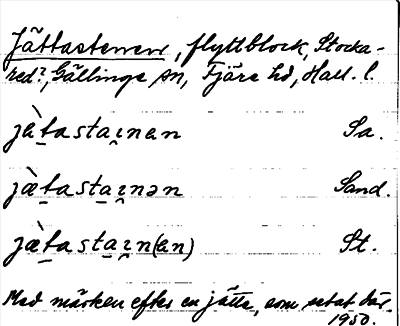 Jättastenen, flyttblock, Stocka-
red?, Gällinge sn, Fjäre hd, Hall. l.
jæ̀tastaɪ̯nan Sa.
jæ̀tastaɪ̯nən Sand.
jæ̀tastaɪ̯n(an) St.
Med märken efter en jätta, som setat där.
1950.